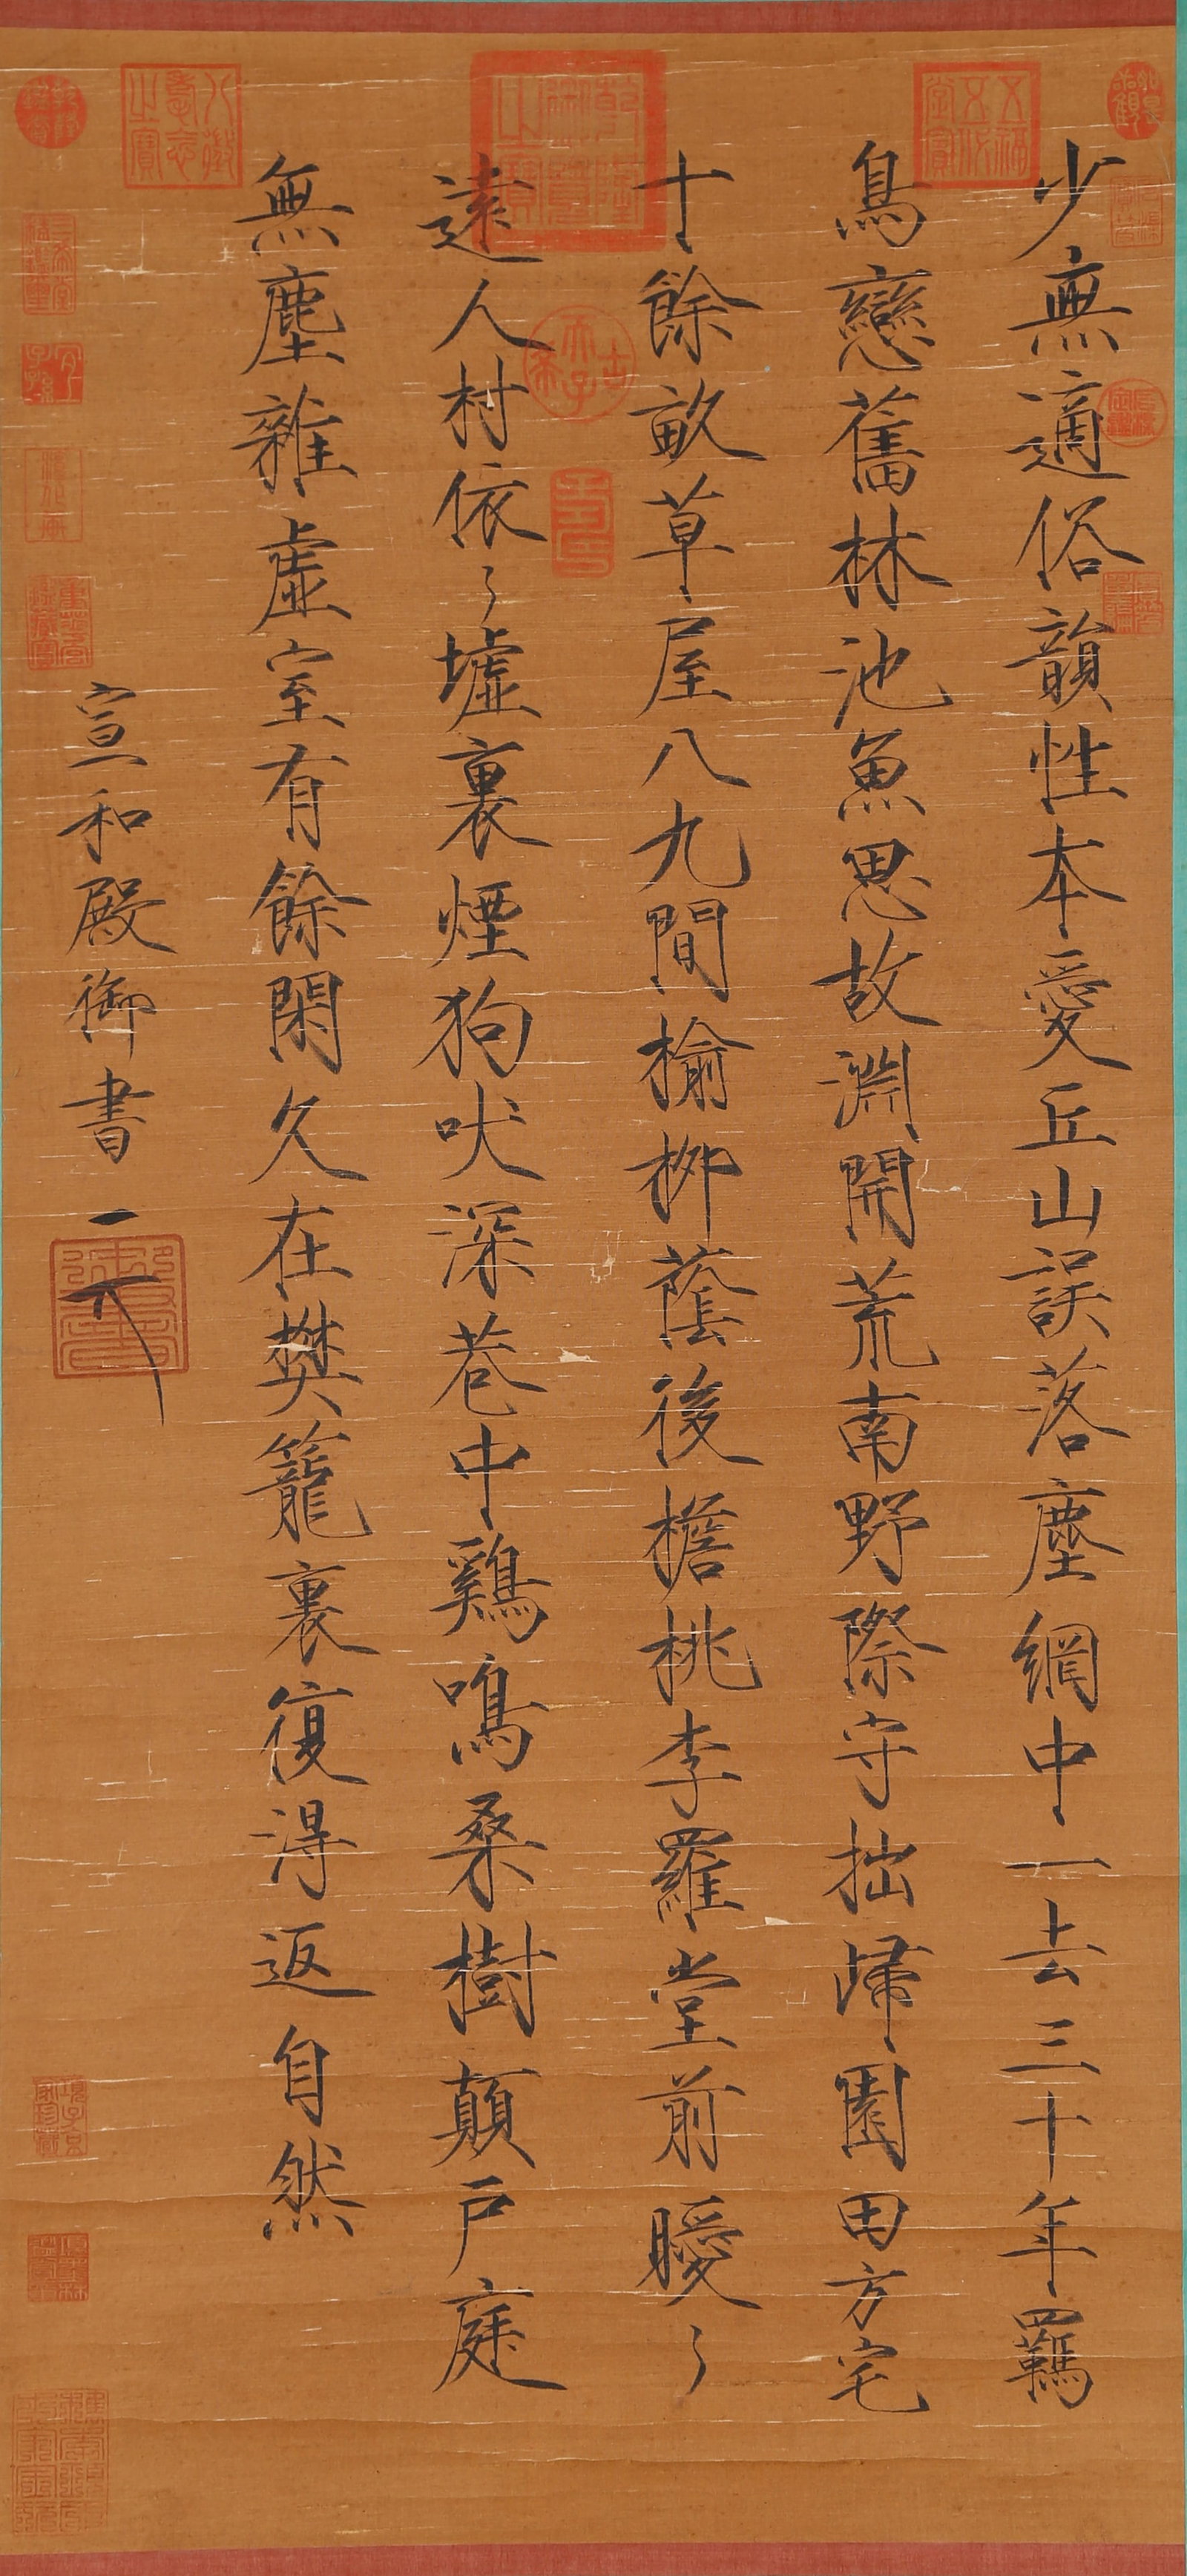 少無適俗韻性本愛丘山誤落塵網中一去三十年羈
鳥戀舊林池魚思故淵開荒南野際守拙歸園田方宅
十餘畝草屋八九間榆柳蔭後檐桃李羅堂前曖〻
遠人村依〻墟裏煙狗吠深巷中鷄鳴桑樹顛戶庭
無塵雜虛室有餘閑久在樊籠裏復得返自然
宣和殿御書